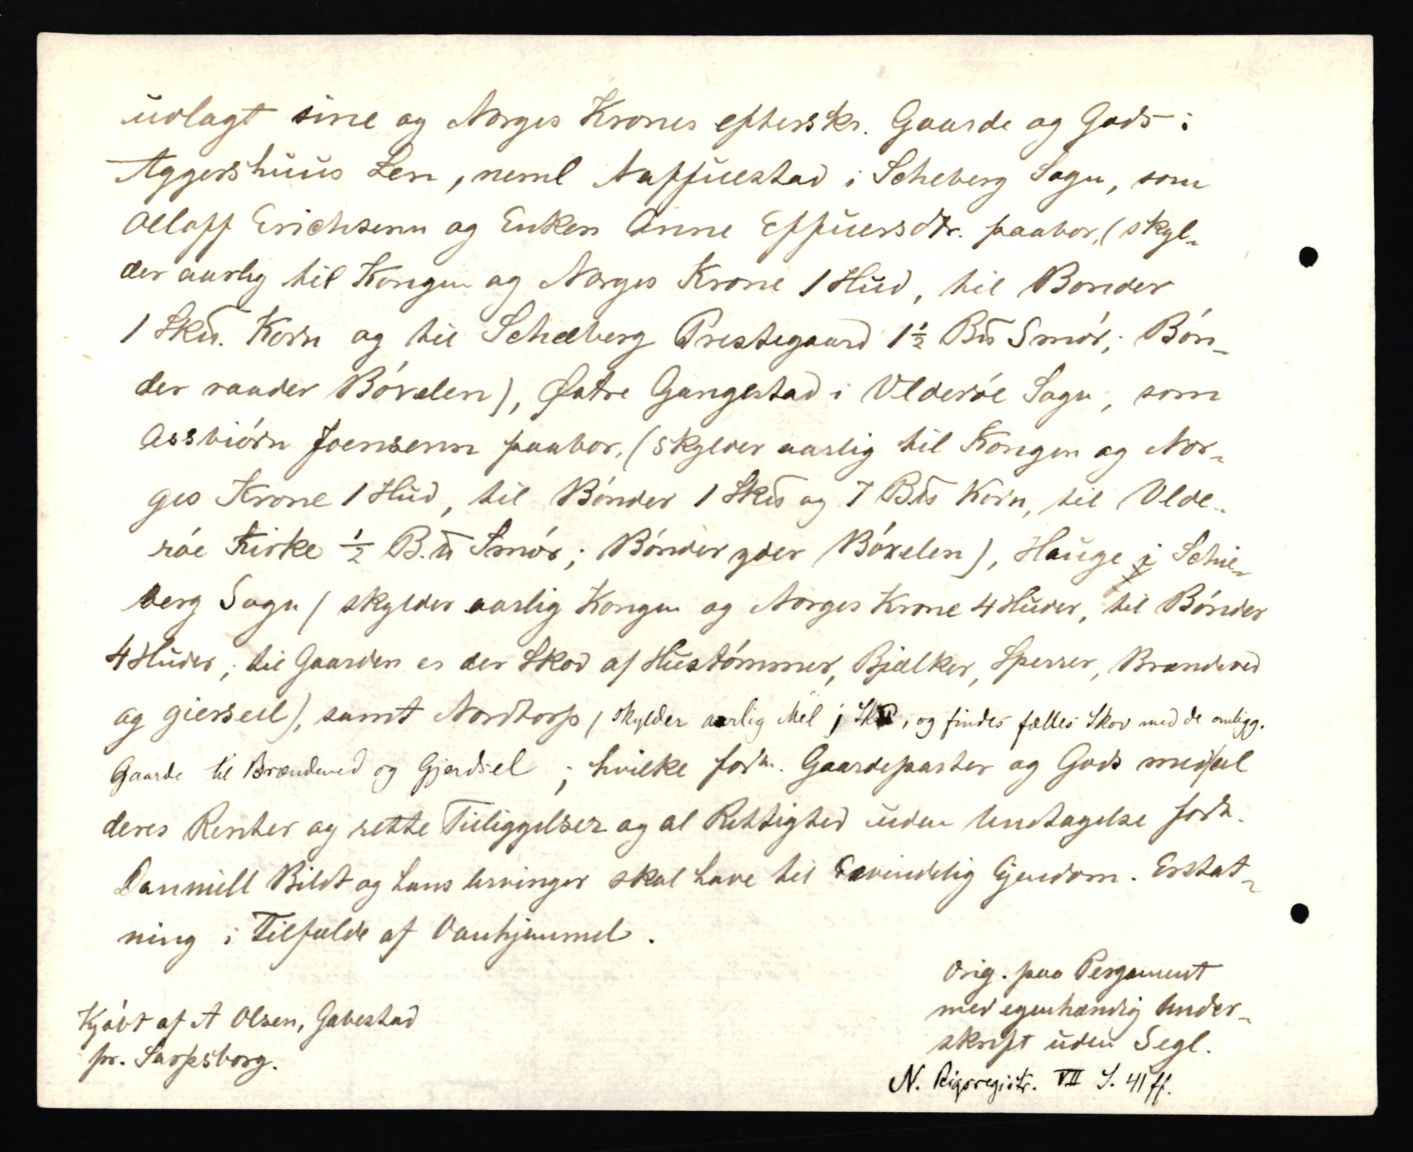 udlagt sine og Norges Krones efterskr. Gaarde og Gods i
Aggershuus Len, neml Naffuestad i Scheberg Sogn, som
Olaff Erichsenn og Enken Anne Effuersdtr. paabor, (skyl-
der aarlig til Kongen og Norges Krone 1 Hud, til Bonder
1 Skũ. Korn og til Scheberg Prestegaard 1½ Bũ Smør; Bøn-
der raader Bóxelen), Østre Gangestad i Vlderöe Sogn, som
Assbiórn Joensenn paabor, (skylder aarlig til Kongen og Nor-
ges Krone 1 Hud, til Bónder 1 Skũ og 7 Bũs Korn, til Vlde-
róe Kirke ½ B.ũ Smór; Bónder yder Bóxelen), Hauge i Schie-
berg Sogn (skylder aarlig Kongen og Norges Krone 4 Huder, til Bónder
4 Huder; til Gaarden er der Skov af Hustómmer, Bjælker, Sperrer, Brændeved
og gierseil), samt Nordtorp (skylder aarlig Mel j Sk℔, og findes fælles Skov med de omligg.
Gaarde til Brændeved og Gjerdsel; hvilke fordn. Gaardeparter og Gods med al
deres Renter og rette Tilliggelser og al Rettighed uden Undtagelse fordn.
Danniell Bildt og hans Arvinger skal have til Eevindelig Ejendom. Erstat-
ning i Tilfælde af Vanhjemmel.
Orig. paa Pergament
med egenhændig Under-
skrift uden Segl.
N. Rigsregistr. VII S. 41 ff.
Kjóbt af A Olsen, Gabestad
pr. Sarpsborg.